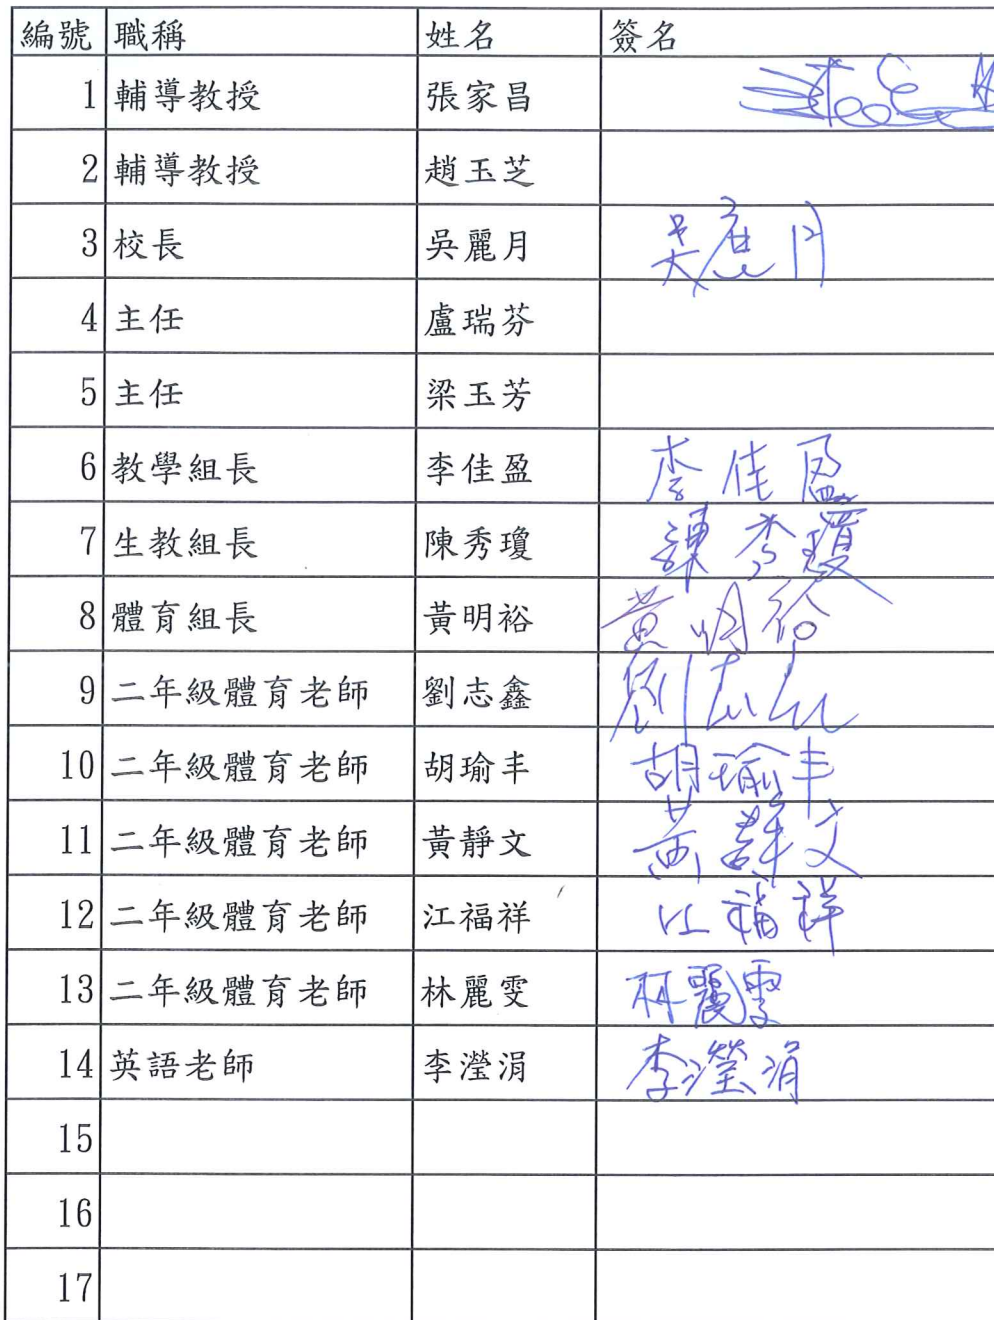 編號 職稱 姓名 簽名
1 輔導教授 張家昌
2 輔導教授 趙玉芝
3 校長 吳麗月 吳麗月
4 主任 盧瑞芬
5 主任 梁玉芳
6 教學組長 李佳盈 李佳盈
7 生教組長 陳秀瓊 陳秀瓊
8 體育組長 黃明裕 黃明裕
9 二年級體育老師 劉志鑫 劉志鑫
10 二年級體育老師 胡瑜丰 胡瑜丰
11 二年級體育老師 黃靜文 黃靜文
12 二年級體育老師 江福祥 江福祥
13 二年級體育老師 林麗雯 林麗雯
14 英語老師 李瀅涓 李瀅涓
15
16
17